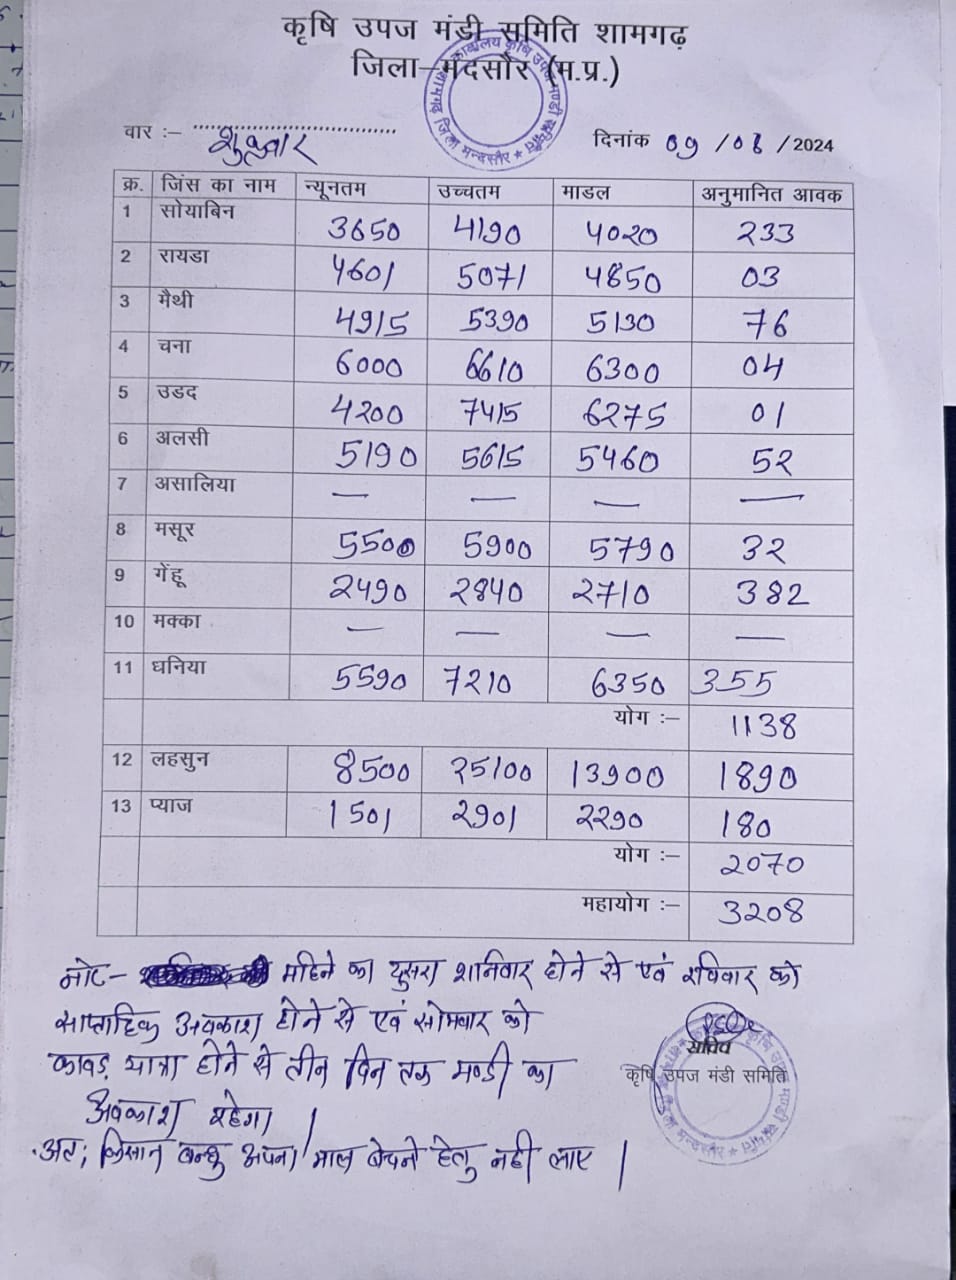 कृषि उपज मंडी समिति शामगढ़
जिला–मंदसौर (म.प्र.)
वार :– शुक्रवार दिनांक 09/08/2024
क्र. जिंस का नाम न्यूनतम उच्चतम माडल अनुमानित आवक
1 सोयाबिन 3650 4190 4020 233
2 रायडा 4601 5071 4850 03
3 मैथी 4915 5390 5130 76
4 चना 6000 6610 6300 04
5 उडद 4200 7415 6275 01
6 अलसी 5190 5615 5460 52
7 असालिया — — — —
8 मसूर 5500 5900 5790 32
9 गेंहू 2490 2840 2710 382
10 मक्का — — — —
11 धनिया 5590 7210 6350 355
योग :– 1138
12 लहसुन 8500 25100 13900 1890
13 प्याज 1501 2901 2290 180
योग :– 2070
महायोग :– 3208
नोट– महिने का दुसरा शनिवार होने से एवं रविवार को
साप्ताहिक अवकाश होने से एवं सोमवार को
कावड़ यात्रा होने से तीन दिन तक मण्डी का
अवकाश रहेगा।
अत; किसान बन्धु अपना माल बेचने हेतु नही लाए।
सचिव
कृषि उपज मंडी समिति